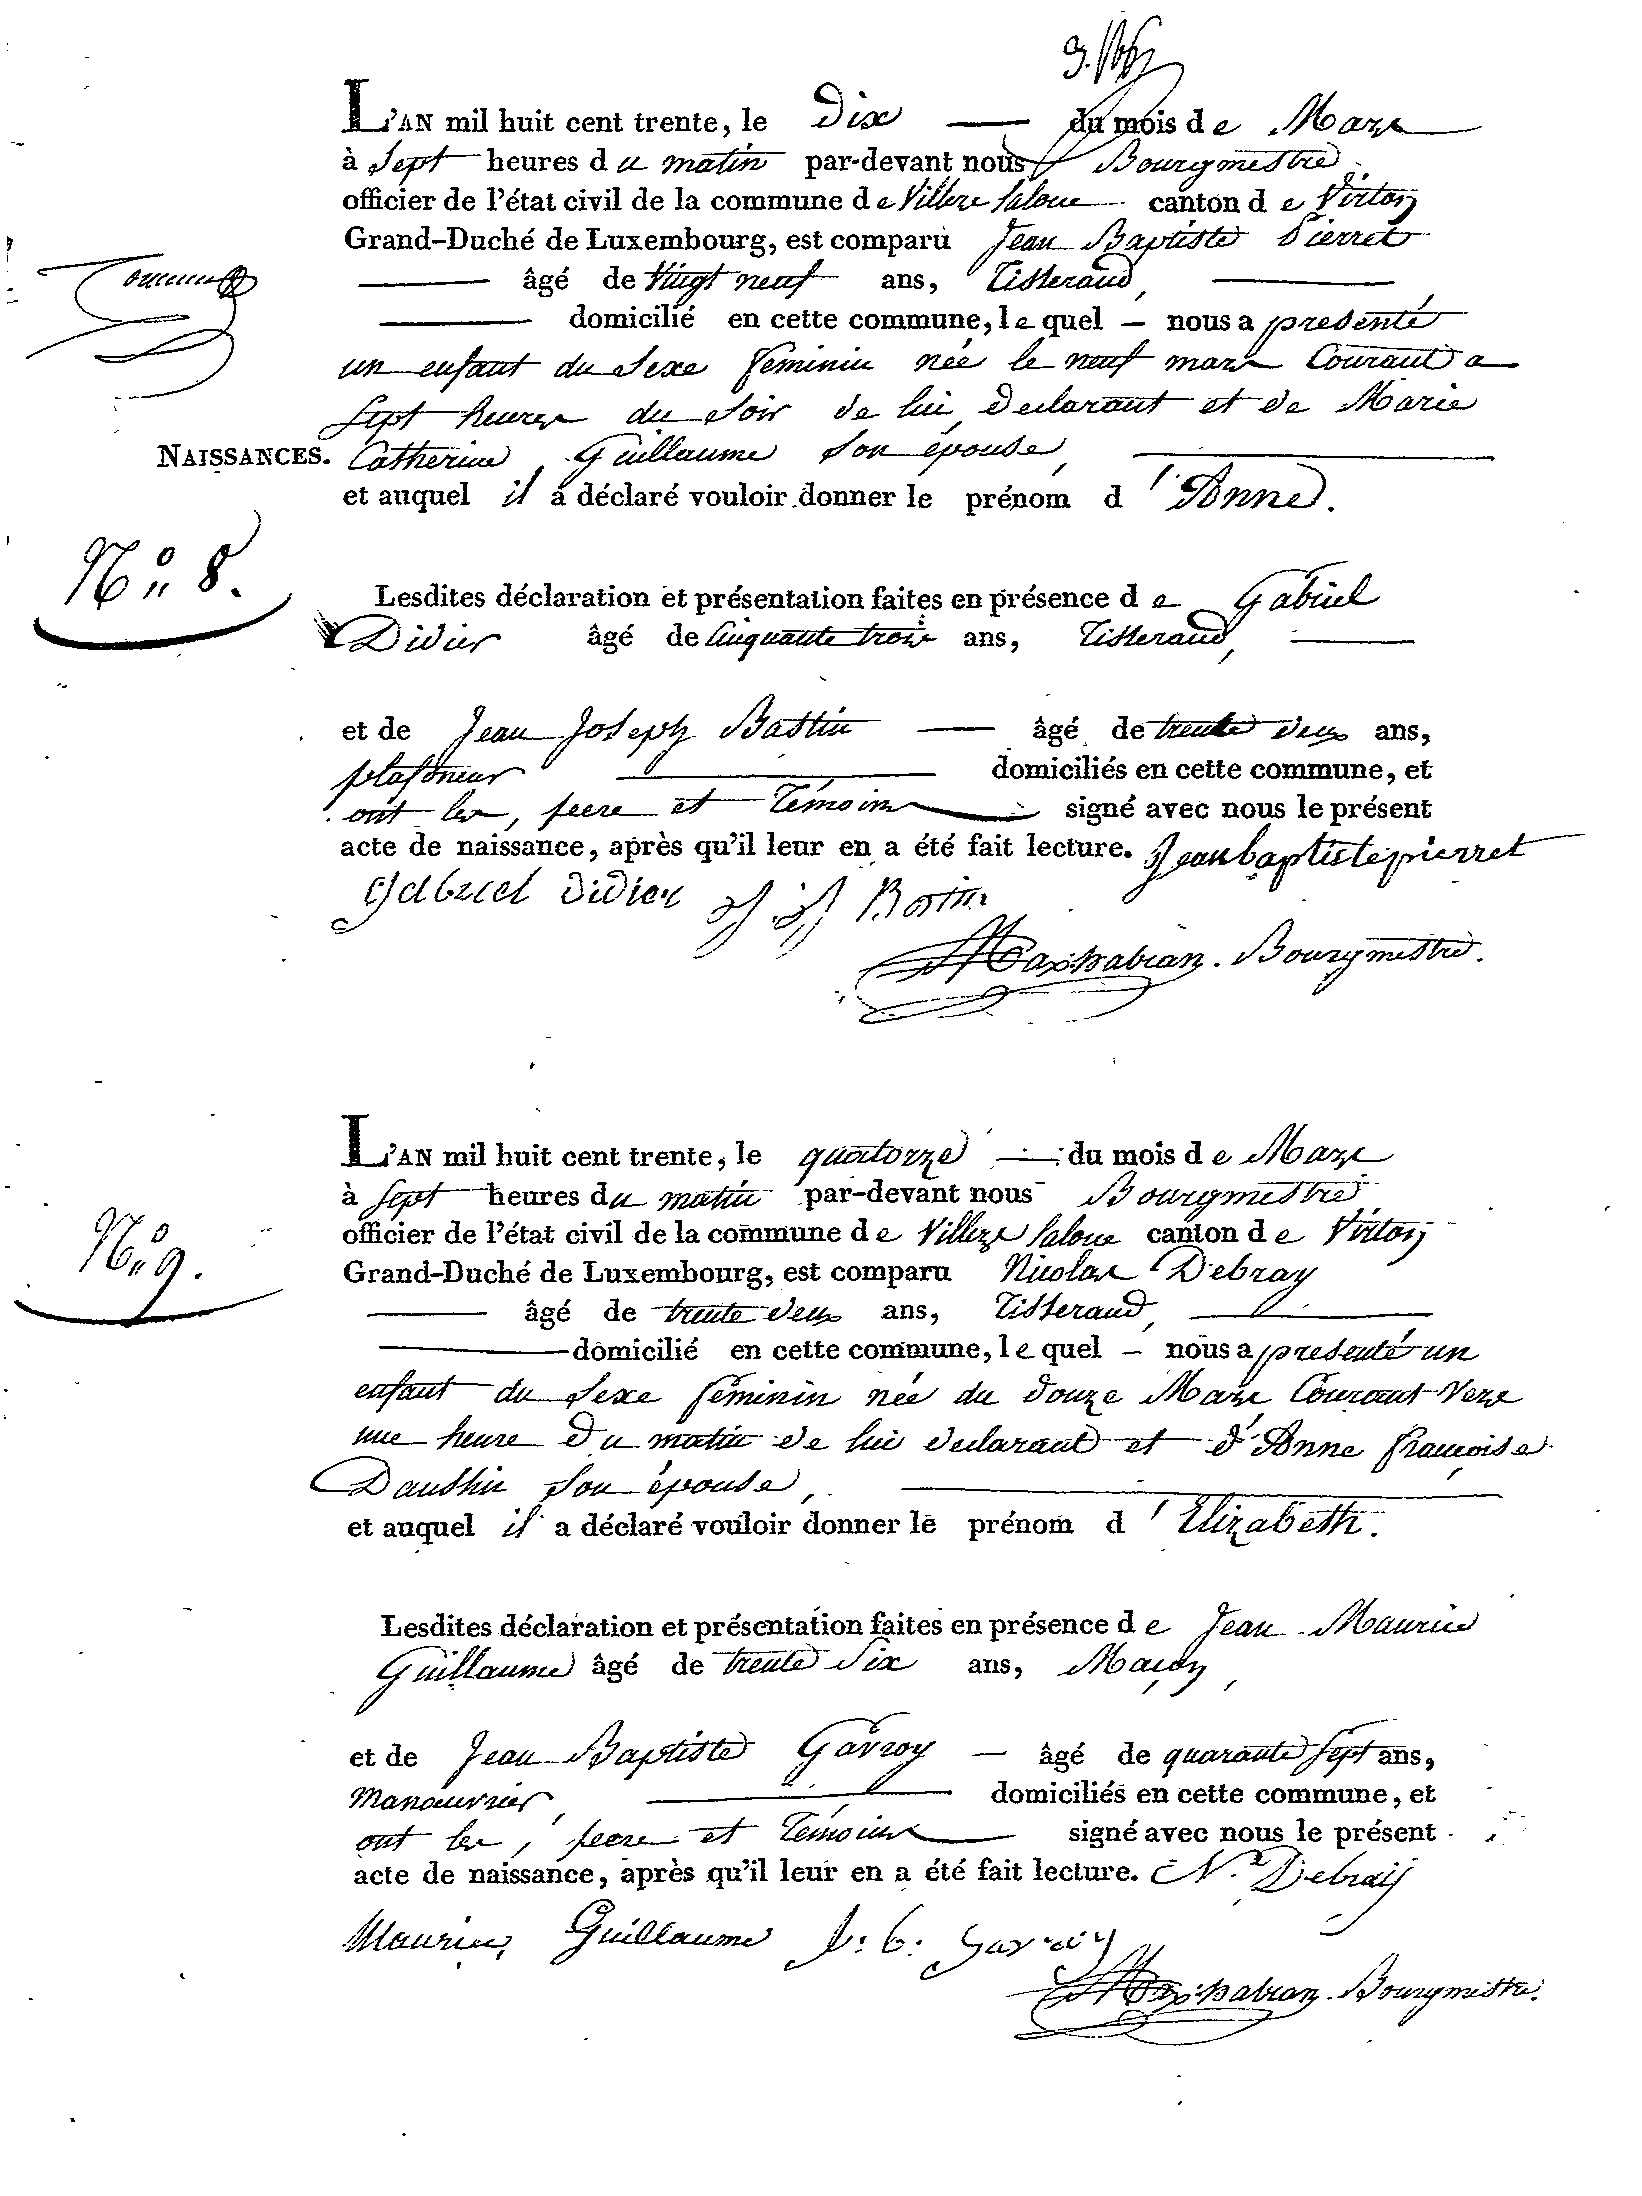 L'AN mil huit cent trente, le Dix du mois de Mars
à Sept heures du matin par-devant nous Bourgmestre
officier de l'état civil de la commune de Villers Saloue canton de Virton
Grand-Duché de Luxembourg, est comparu Jean Baptiste Pierret
âgé de Vingt neuf ans, Tisserand,
domicilié en cette commune, lequel – nous a presenté
un enfant du Sexe feminin née le neuf mars Courant a
Sept heures du Soir de lui declarant et de Marie
NAISSANCES. Catherine Guillaume Son épouse,
et auquel il a déclaré vouloir donner le prénom d'Anne.
No. 8.
Lesdites déclaration et présentation faites en présence de Gabriel
Didier âgé de Cinquante trois ans, Tisserand,
et de Jean Joseph Bastin âgé de trente deux ans,
plafoneur domiciliés en cette commune, et
ont les, peere et Témoins signé avec nous le présent
acte de naissance, après qu'il leur en a été fait lecture. Jean baptiste pierret
Gabriel Didier J. J. Bastin
Bourgmestre.
L'AN mil huit cent trente, le quatorze du mois de Mars
à Sept heures du matin par-devant nous Bourgmestre
officier de l'état civil de la commune de Villers Saloue canton de Virton
No. 9.
Grand-Duché de Luxembourg, est comparu Nicolas Debray
âgé de trente deux ans, Tisserand,
domicilié en cette commune, lequel – nous a presenté un
enfant du Sexe féminin née du douze Mars Courant Vers
une heure Du matin de lui declarant et d'Anne françoise
Dauthin Son épouse,
et auquel il a déclaré vouloir donner le prénom d'Elizabeth.
Lesdites déclaration et présentation faites en présence de Jean Maurice
Guillaume âgé de trente Six ans, Maçon,
et de Jean Baptiste Gavroy – âgé de quarante Sept ans,
Manœuvrier, domiciliés en cette commune, et
ont les, peere et Témoins signé avec nous le présent
acte de naissance, après qu'il leur en a été fait lecture. N. Debraij
Maurice Guillaume J. b. Gavroy
Bourgmestre.